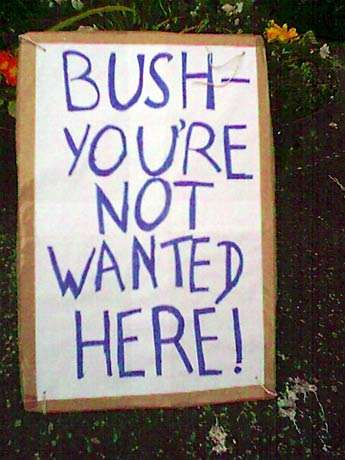 BUSH-
YOU'RE
NOT
WANTED
HERE!